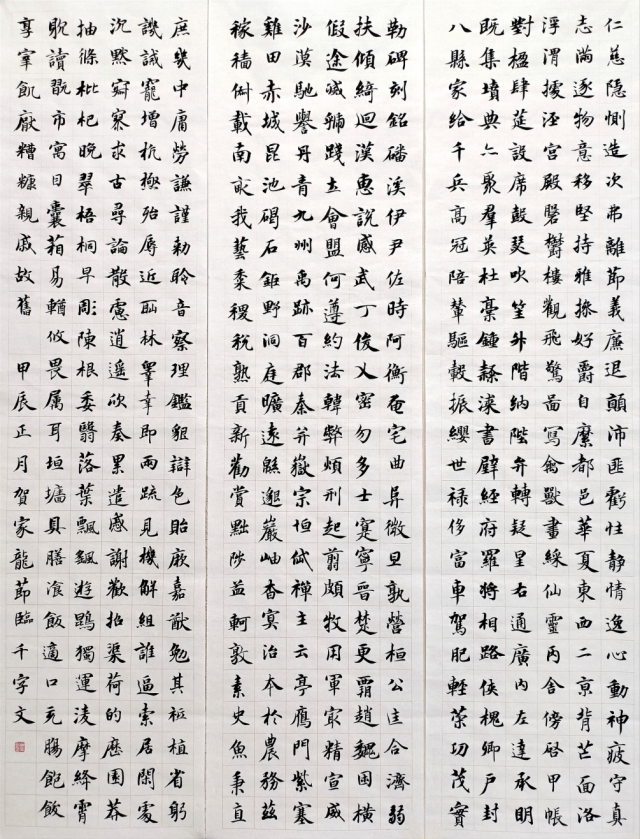 仁慈隱惻造次弗離節義廉退顛沛匪虧性静情逸心動神疲守真
志滿逐物意移堅持雅操好爵自縻都邑華夏東西二京背芒面洛
浮渭據涇宮殿磐鬱樓觀飛驚圖寫禽獸畫綵仙靈丙舍傍啓甲帳
對楹肆筵設席鼓瑟吹笙升階納陛弁轉疑星右通廣內左達承明
既集墳典亦聚羣英杜稾鍾隸漆書壁經府羅將相路俠槐卿戶封
八縣家給千兵高冠陪輦驅轂振纓世祿侈富車駕肥輕策功茂實
勒碑刻銘磻溪伊尹佐時阿衡奄宅曲阜微旦孰營桓公匡合濟弱
扶傾綺迴漢惠說感武丁俊乂密勿多士寔寧晉楚更霸趙魏困橫
假途滅虢踐土會盟何遵約法韓弊煩刑起翦頗牧用軍最精宣威
沙漠馳譽丹青九州禹跡百郡秦并嶽宗恒岱禪主云亭鴈門紫塞
雞田赤城昆池碣石鉅野洞庭曠遠緜邈巖岫杳冥治本於農務茲
稼穡俶載南畝我藝黍稷稅熟貢新勸賞黜陟孟軻敦素史魚秉直
庶幾中庸勞謙謹勑聆音察理鑑貌辯色貽厥嘉猷勉其祗植省躬
譏誡寵增抗極殆辱近恥林睾幸即兩疏見機解組誰逼索居閑處
沉默寂寥求古尋論散慮逍遙欣奏累遣慼謝歡招渠荷的歷園莽
抽條枇杷晚翠梧桐早彫陳根委翳落葉飄颻遊鵾獨運淩摩絳霄
耽讀翫市寓目囊箱易輶攸畏属耳垣墻具膳飡飯適口充腸飽飫
享宰飢厭糟糠親戚故舊 甲辰正月賀家龍節臨千字文